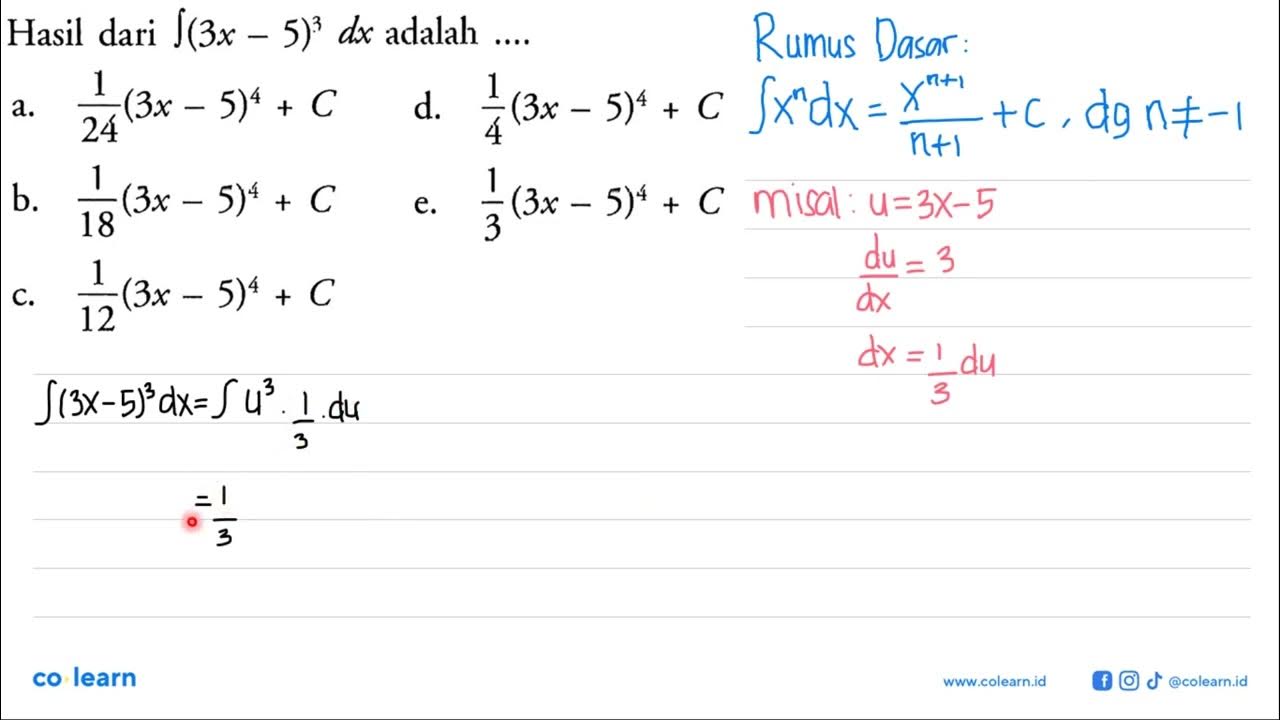 Hasil dari ∫(3x − 5)³ dx adalah ....
a. 1/24 (3x − 5)⁴ + C
b. 1/18 (3x − 5)⁴ + C
c. 1/12 (3x − 5)⁴ + C
d. 1/4 (3x − 5)⁴ + C
e. 1/3 (3x − 5)⁴ + C
Rumus Dasar:
∫xⁿdx = xⁿ⁺¹/n+1 + C, dg n ≠ −1
misal: u = 3x − 5
du/dx = 3
dx = 1/3 du
∫(3x−5)³dx = ∫u³ . 1/3 . du
= 1/3
co learn
www.colearn.id
@colearn.id